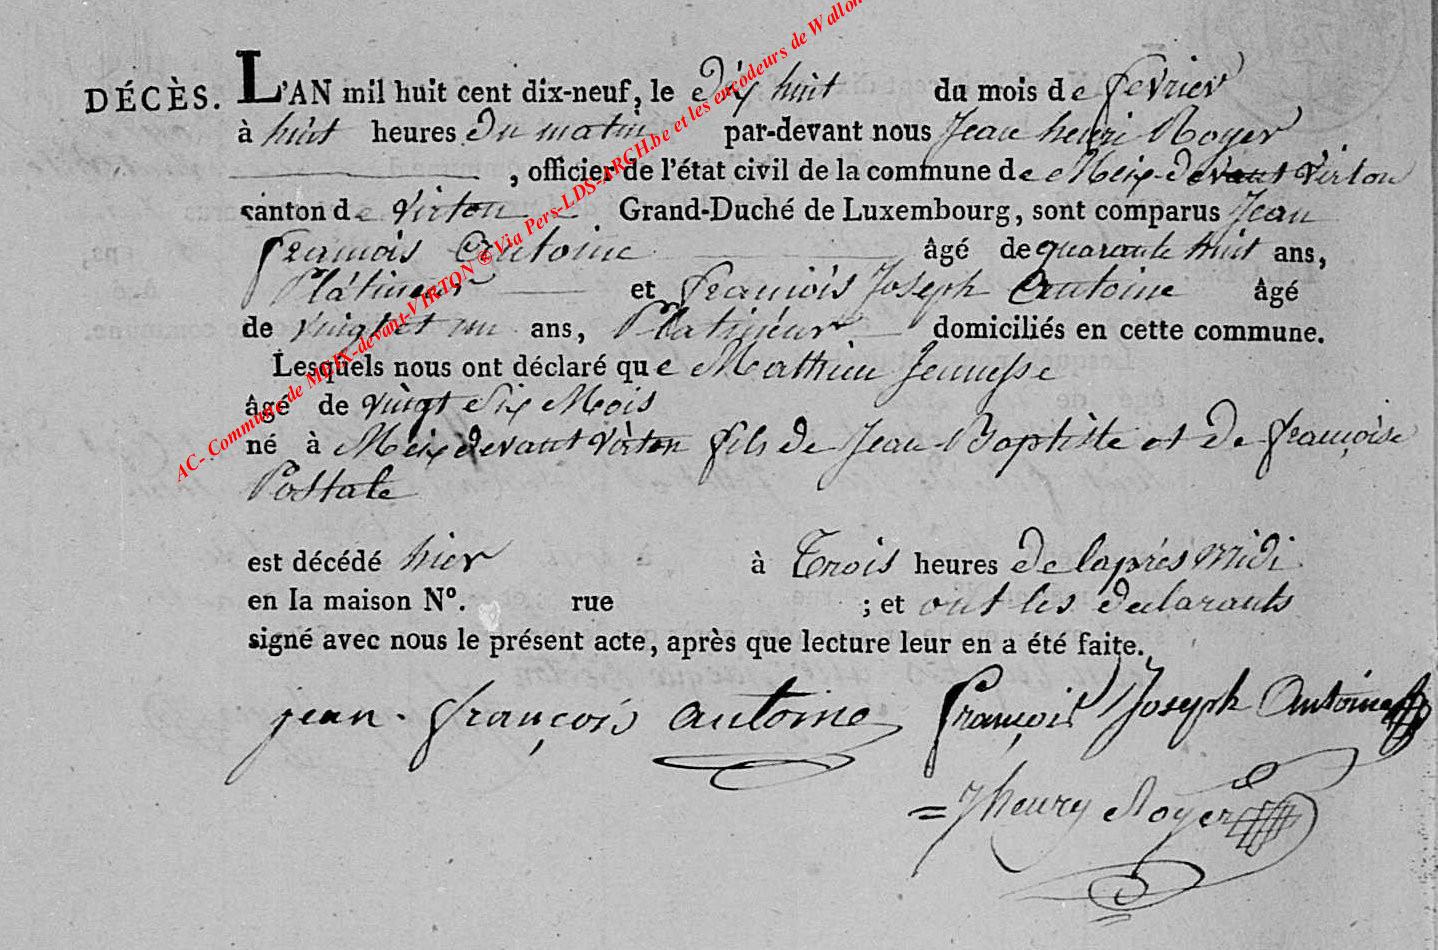 DÉCÈS. L'AN mil huit cent dix-neuf, le dix huit du mois de fevrier
à huit heures du matin par-devant nous Jean henri Royer
, officier de l'état civil de la commune de Meix devant Virton
canton de Virton Grand-Duché de Luxembourg, sont comparus Jean
François Antoine âgé de quarante huit ans,
Platineur et François Joseph Antoine âgé
de vingt et un ans, Platineur domiciliés en cette commune.
Lesquels nous ont déclaré que Mathieu Jeunesse
âgé de vingt Six Mois
né à Meix devant virton fils de Jean Baptiste et de françoise
Postale
est décédé hier à Trois heures de laprés midi
en la maison N°. rue ; et ont les declarants
signé avec nous le présent acte, après que lecture leur en a été faite.
jean françois antoine François Joseph Antoine
Jhenry Royer
AC- Commune de MEIX-devant-VIRTON ® Via Pers-LDS-ARCH.be et les encodeurs de Wallon